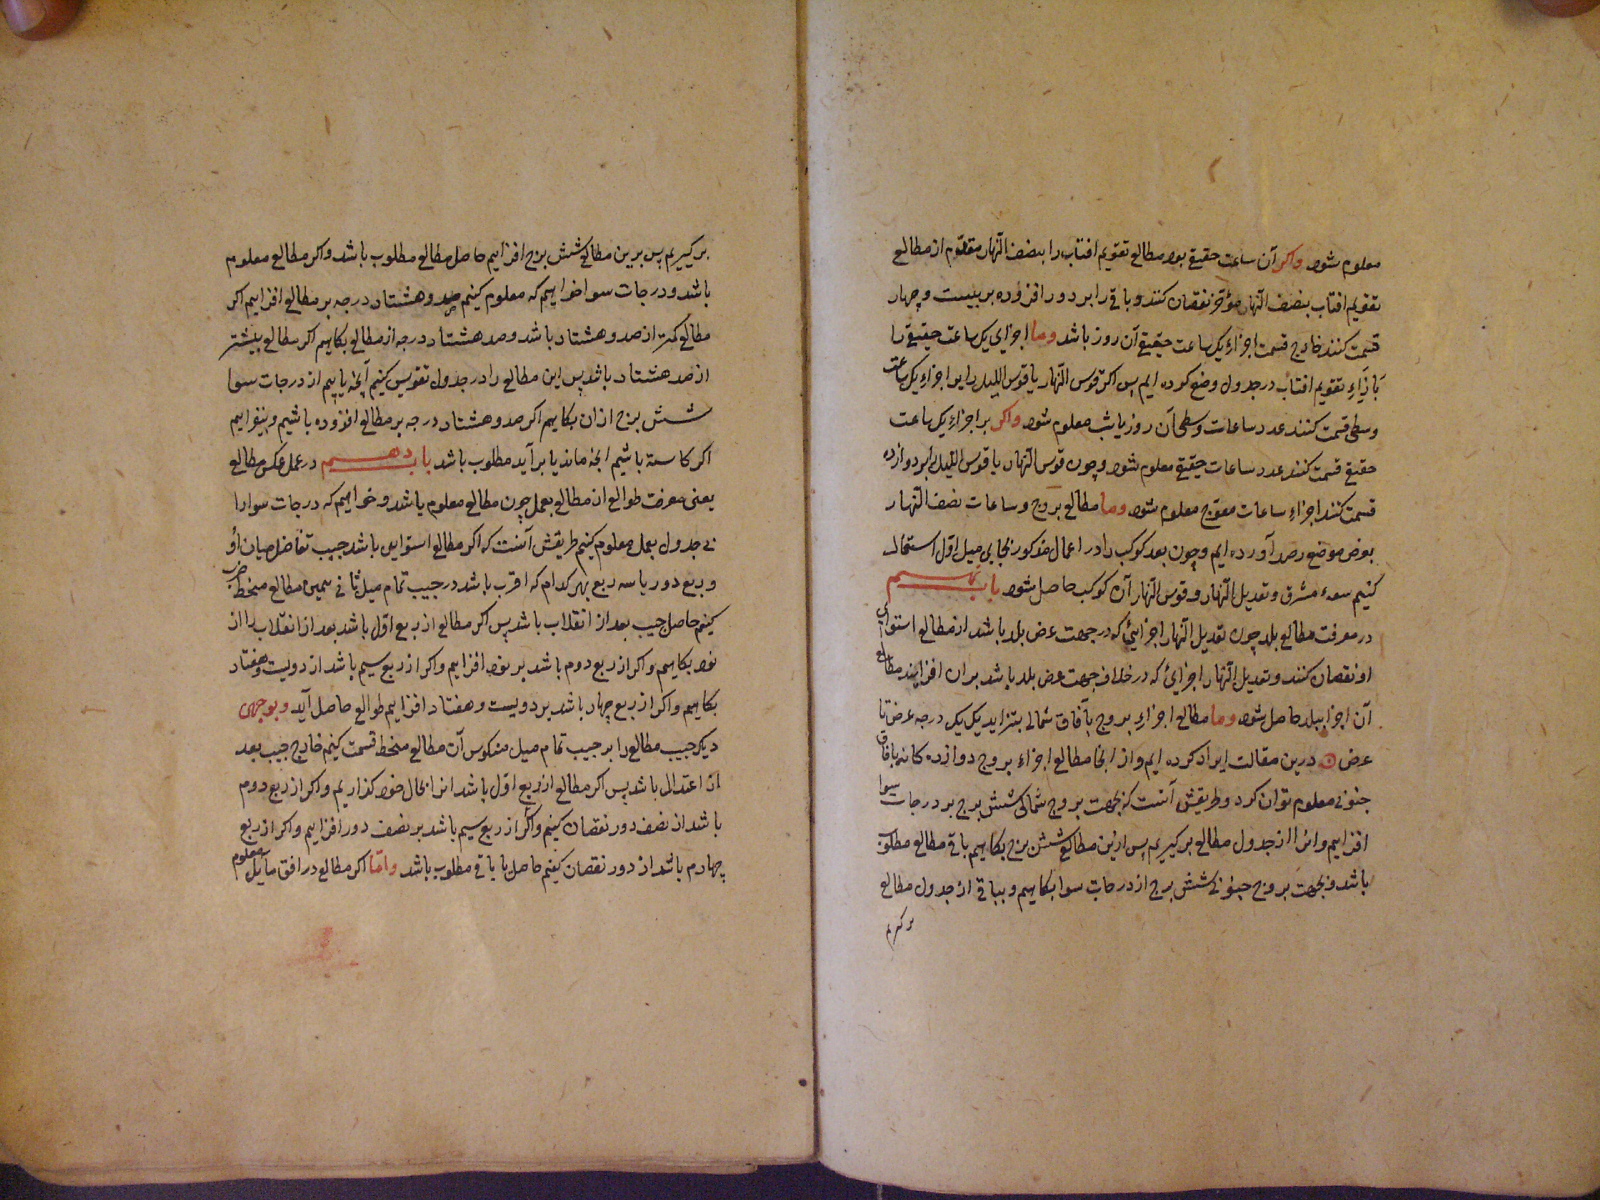 معلوم شود واکر آن ساعت حقیقی بود مطالع تقویم افتاب را بنصف النهار مقدم از مطالع
تقویم افتاب بنصف النهار مؤخر نقصان کنند و باقی را بر دور افزوده بر بیست و چهار
قسمت کنند خارج قسمت اجزاءِ یک ساعت حقیقی آن روز باشد وما اجزای یک ساعت حقیقی را
بازاءِ تقویم افتاب در جدول وضع کرده ایم پس اکر قوس النهار یا قوس اللیل را بر اجزاءِ یک ساعت
وسطی قسمت کنند عدد ساعات وسطی آن روز یا شب معلوم شود واکر بر اجزاءِ یک ساعت
حقیقی قسمت کنند عدد ساعات حقیقی معلوم شود و چون قوس النهار یا قوس اللیل را بر دوازده
قسمت کنند اجزاءِ ساعات معوّج معلوم شود وما مطالع بروج و ساعات نصف النهار
بعرض موضع رصد آورده ایم و چون بعد کوکب را در اعمال مذکور بجای میل اول استعمال
کنیم سعه مشرق و تعدیل النهار و قوس النهار آن کوکب حاصل شود باب نهم
در معرفت مطالع بلد چون تعدیل النهار اجزائی که در جهت عرض بلد باشد از مطالع استوای
او نقصان کنند و تعدیل النهار اجزائی که در خلاف جهت عرض بلد باشد بران افزایند مطالع
آن اجزا ببلد حاصل شود وما مطالع اجزاءِ بروج بآفاق شمالی بتزاید یک یک درجه عرض تا
عرض درین مقالت ایراد کرده ایم و از انجا مطالع اجزاءِ بروج دوازده کانه بافاق
جنوبی معلوم توان کرد و طریقش آنست که بجهت بروج شمالی شش برج بر درجات سوا
افزاییم وانرا از جدول مطالع برکیریم پس ازین مطالع شش برج بکاهیم باقی مطالع مطلوب
باشد و بجهت بروج جنوبی شش برج از درجات سوا بکاهیم و بباقی از جدول مطالع
برکیریم
برکیریم پس برین مطالع شش برج افزاییم حاصل مطالع مطلوب باشد واکر مطالع معلوم
باشد و درجات سوا خواهیم که معلوم کنیم صد و هشتاد درجه بر مطالع افزاییم اکر
مطالع کمتر از صد و هشتاد باشد و صد هشتاد درجه از مطالع بکاهیم اکر مطالع بیشتر
از صد هشتاد باشد پس این مطالع را در جدول تقویس کنیم آنچه یابیم از درجات سوا
شش برج ازان بکاهیم اکر صد و هشتاد درجه بر مطالع افزوده باشیم و بیفزاییم
اکر کاسته باشیم انچه ماند یا برآید مطلوب باشد باب دهم در عمل عکس مطالع
یعنی معرفت طوالع از مطالع بعمل چون مطالع معلوم باشد و خواهیم که درجات سوا را
بی جدول بعمل معلوم کنیم طریقش آنست که اکر مطالع استوایی باشد جیب تفاضل میان أو
و ربع دور یا سه ربع بهر کدام که اقرب باشد در جیب تمام میل ثانی سمین مطالع منحط ضرب
کنیم حاصل جیب بعد از انقلاب باشد پس اکر مطالع از ربع اول باشد بعد از انقلاب را از
نود بکاهیم واکر از ربع دوم باشد بر نود افزاییم واکر از ربع سیم باشد از دویست و هفتاد
بکاهیم واکر از ربع چهارم باشد بر دویست و هفتاد افزاییم طوالع حاصل آید وبوجهی
دیکر جیب مطالع را بر جیب تمام میل منکوس آن مطالع منحط قسمت کنیم خارج جیب بعد
از اعتدال باشد پس اکر مطالع از ربع اول باشد انرا بحال خود کذاریم واکر از ربع دوم
باشد از نصف دور نقصان کنیم واکر از ربع سیم باشد بر نصف دور افزاییم واکر از ربع
چهارم باشد از دور نقصان کنیم حاصل یا باقی مطلوب باشد وامّا اکر مطالع در افق مایل معلوم